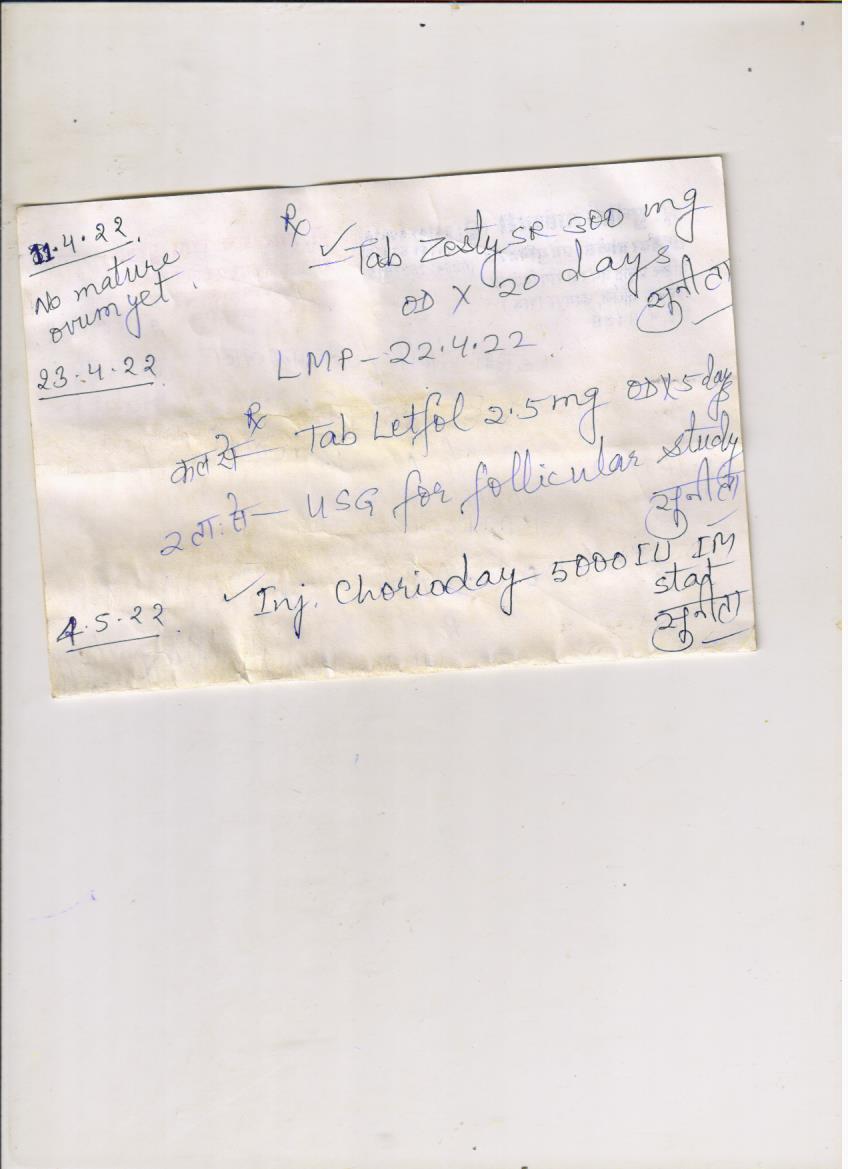 11.4.22
No mature
ovum yet.
Rx
✓ Tab Zosty SR 300 mg
OD X 20 days
सुनीता
23.4.22
LMP - 22.4.22
Rx
कल से - Tab Letfol 2.5 mg OD X 5 days
2 ता: से - USG for follicular study
सुनीता
4.5.22
✓ Inj. Chorioday 5000 IU IM
stat
सुनीता